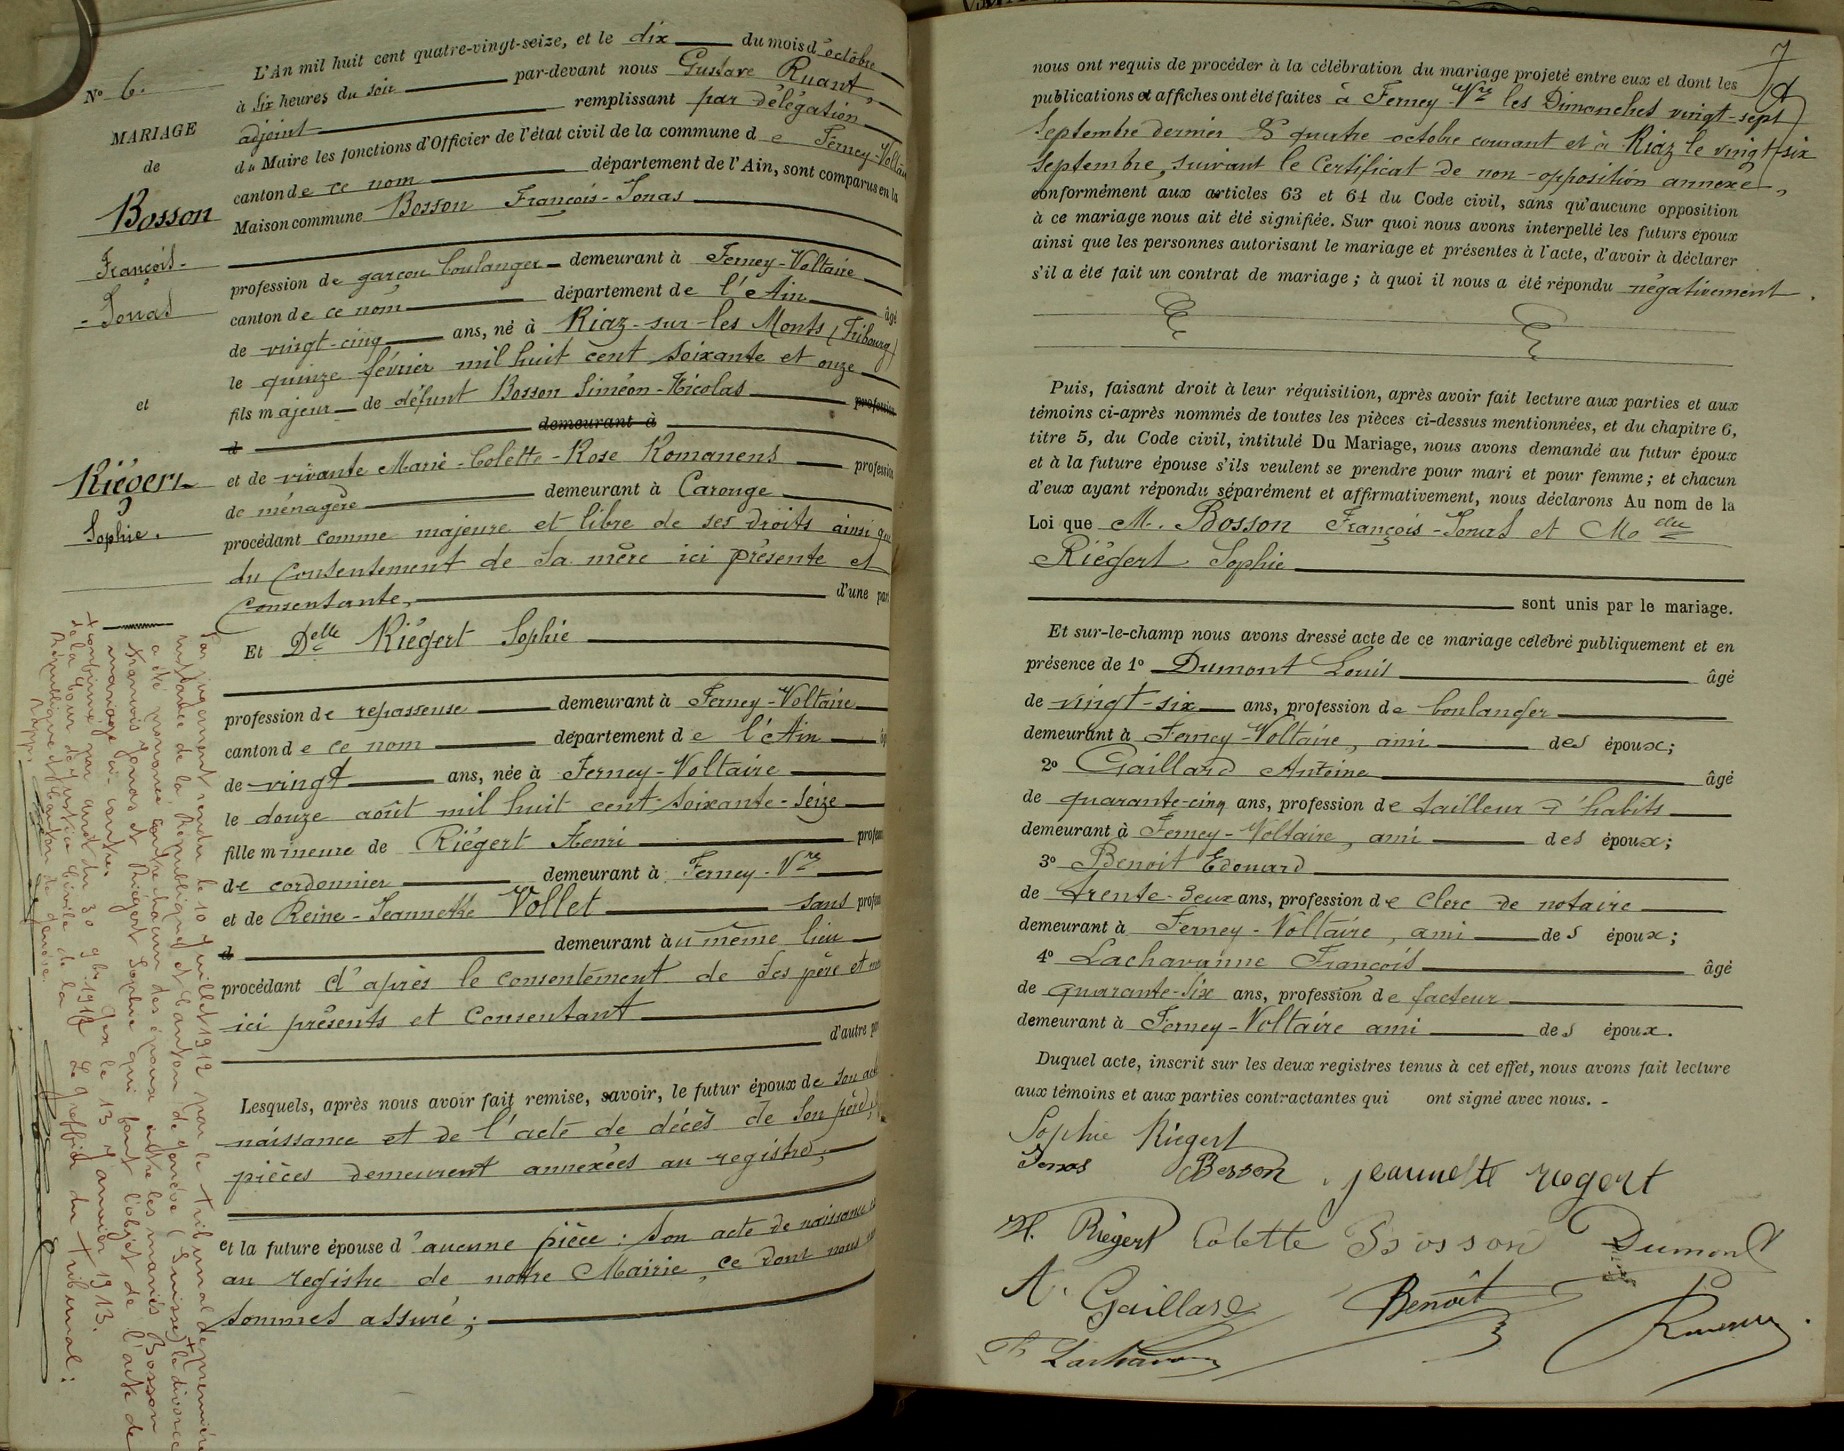 N° 6.
MARIAGE
de
Bosson
François-
-Jonas
et
Riégert
Sophie.
L'An mil huit cent quatre-vingt-seize, et le dix du mois d'octobre
à six heures du soir par-devant nous Gustave Ruant,
adjoint remplissant par délégation
du Maire les fonctions d'Officier de l'état civil de la commune de Ferney-Voltaire
canton de ce nom département de l'Ain, sont comparus en la
Maison commune Bosson François-Jonas
profession de garçon boulanger demeurant à Ferney-Voltaire
canton de ce nom département de l'Ain âgé
de vingt-cinq ans, né à Riaz-sur-les Monts (Fribourg)
le quinze février mil huit cent soixante et onze
fils majeur de défunt Bosson Siméon-Nicolas profession
d demeurant à
et de vivante Marie-Colette-Rose Romanens profession
de ménagère demeurant à Carouge
procédant comme majeure et libre de ses droits ainsi que
du Consentement de sa mère ici présente et
Consentante, d'une part
Et Delle Riégert Sophie
profession de repasseuse demeurant à Ferney-Voltaire
canton de ce nom département de l'Ain âgé
de vingt ans, née à Ferney-Voltaire
le douze août mil huit cent soixante-seize
fille mineure de Riégert Henri profession
de cordonnier demeurant à Ferney-Vre
et de Reine-Jeannette Vollet sans profession
d demeurant au même lieu
procédant d'après le consentement de ses père et mère
ici présents et Consentant
d'autre part
Lesquels, après nous avoir fait remise, savoir, le futur époux de son acte
naissance et de l'acte de décès de son père,
pièces demeurent annexées au registre,
et la future épouse d'aucune pièce : son acte de naissance
au registre de notre Mairie, ce dont nous
sommes assuré ;
Par jugement rendu le 10 Juillet 1912 par le tribunal de première
instance de la République et Canton de Genève (Suisse) le divorce
a été prononcé contre chacun des époux entre les mariés Bosson
François Jonas et Riégert Sophie qui font l'objet de l'acte de
mariage ci-contre. Gex le 13 Janvier 1913.
+ confirmé par arrêt du 30 9bre 1912 Le greffier du tribunal :
de la Cour de Justice Civile de la
République et Canton de Genève.
7
nous ont requis de procéder à la célébration du mariage projeté entre eux et dont les
publications et affiches ont été faites à Ferney-Vre les Dimanches vingt-sept
Septembre dernier & quatre octobre courant et à Riaz le vingt-six
septembre, suivant le Certificat de non-opposition annexé,
conformément aux articles 63 et 64 du Code civil, sans qu'aucune opposition
à ce mariage nous ait été signifiée. Sur quoi nous avons interpellé les futurs époux
ainsi que les personnes autorisant le mariage et présentes à l'acte, d'avoir à déclarer
s'il a été fait un contrat de mariage ; à quoi il nous a été répondu négativement.
Puis, faisant droit à leur réquisition, après avoir fait lecture aux parties et aux
témoins ci-après nommés de toutes les pièces ci-dessus mentionnées, et du chapitre 6,
titre 5, du Code civil, intitulé Du Mariage, nous avons demandé au futur époux
et à la future épouse s'ils veulent se prendre pour mari et pour femme ; et chacun
d'eux ayant répondu séparément et affirmativement, nous déclarons Au nom de la
Loi que M. Bosson François-Jonas et Melle
Riégert Sophie
sont unis par le mariage.
Et sur-le-champ nous avons dressé acte de ce mariage célébré publiquement et en
présence de 1° Dumont Louis âgé
de vingt-six ans, profession de boulanger
demeurant à Ferney-Voltaire, ami des époux;
2° Gaillard Antoine âgé
de quarante-cinq ans, profession de tailleur d'habits
demeurant à Ferney-Voltaire, ami des époux;
3° Benoit Edouard
de trente-deux ans, profession de Clerc de notaire
demeurant à Ferney-Voltaire, ami des époux;
4° Lachavanne François âgé
de quarante-six ans, profession de facteur
demeurant à Ferney-Voltaire ami des époux.
Duquel acte, inscrit sur les deux registres tenus à cet effet, nous avons fait lecture
aux témoins et aux parties contractantes qui ont signé avec nous.
Sophie Riegert
Jonas Bosson jeannette riegert
H. Riégert Colette Bosson Dumont
A. Gaillard Benoît